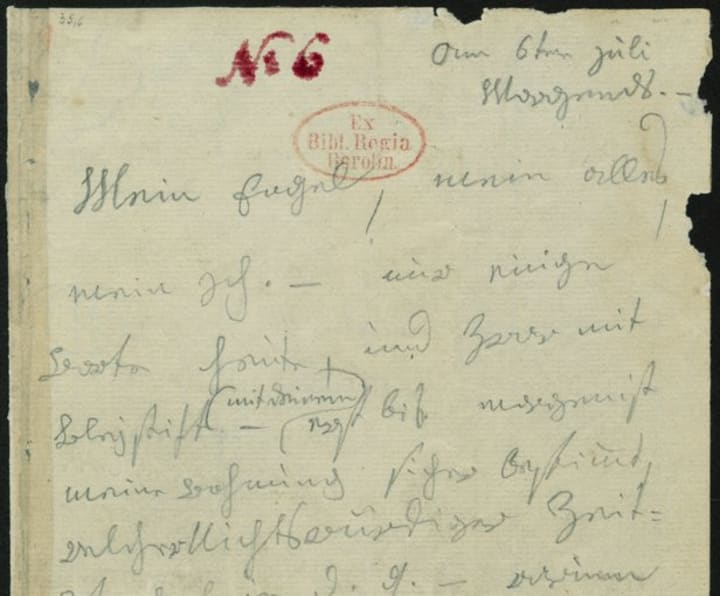 35,6
No 6
am 6ten juli
Morgends. –
Ex
Bibl. Regia
Berolin.
Mein Engel, mein alles,
mein Ich. – nur einige
Worte heute, und zwar mit
Bleystift – (mit deinem)
erst bis morgen ist
meine Wohnung sicher bestimmt,
welcher Nichtswürdiger Zeit=
d. g. –